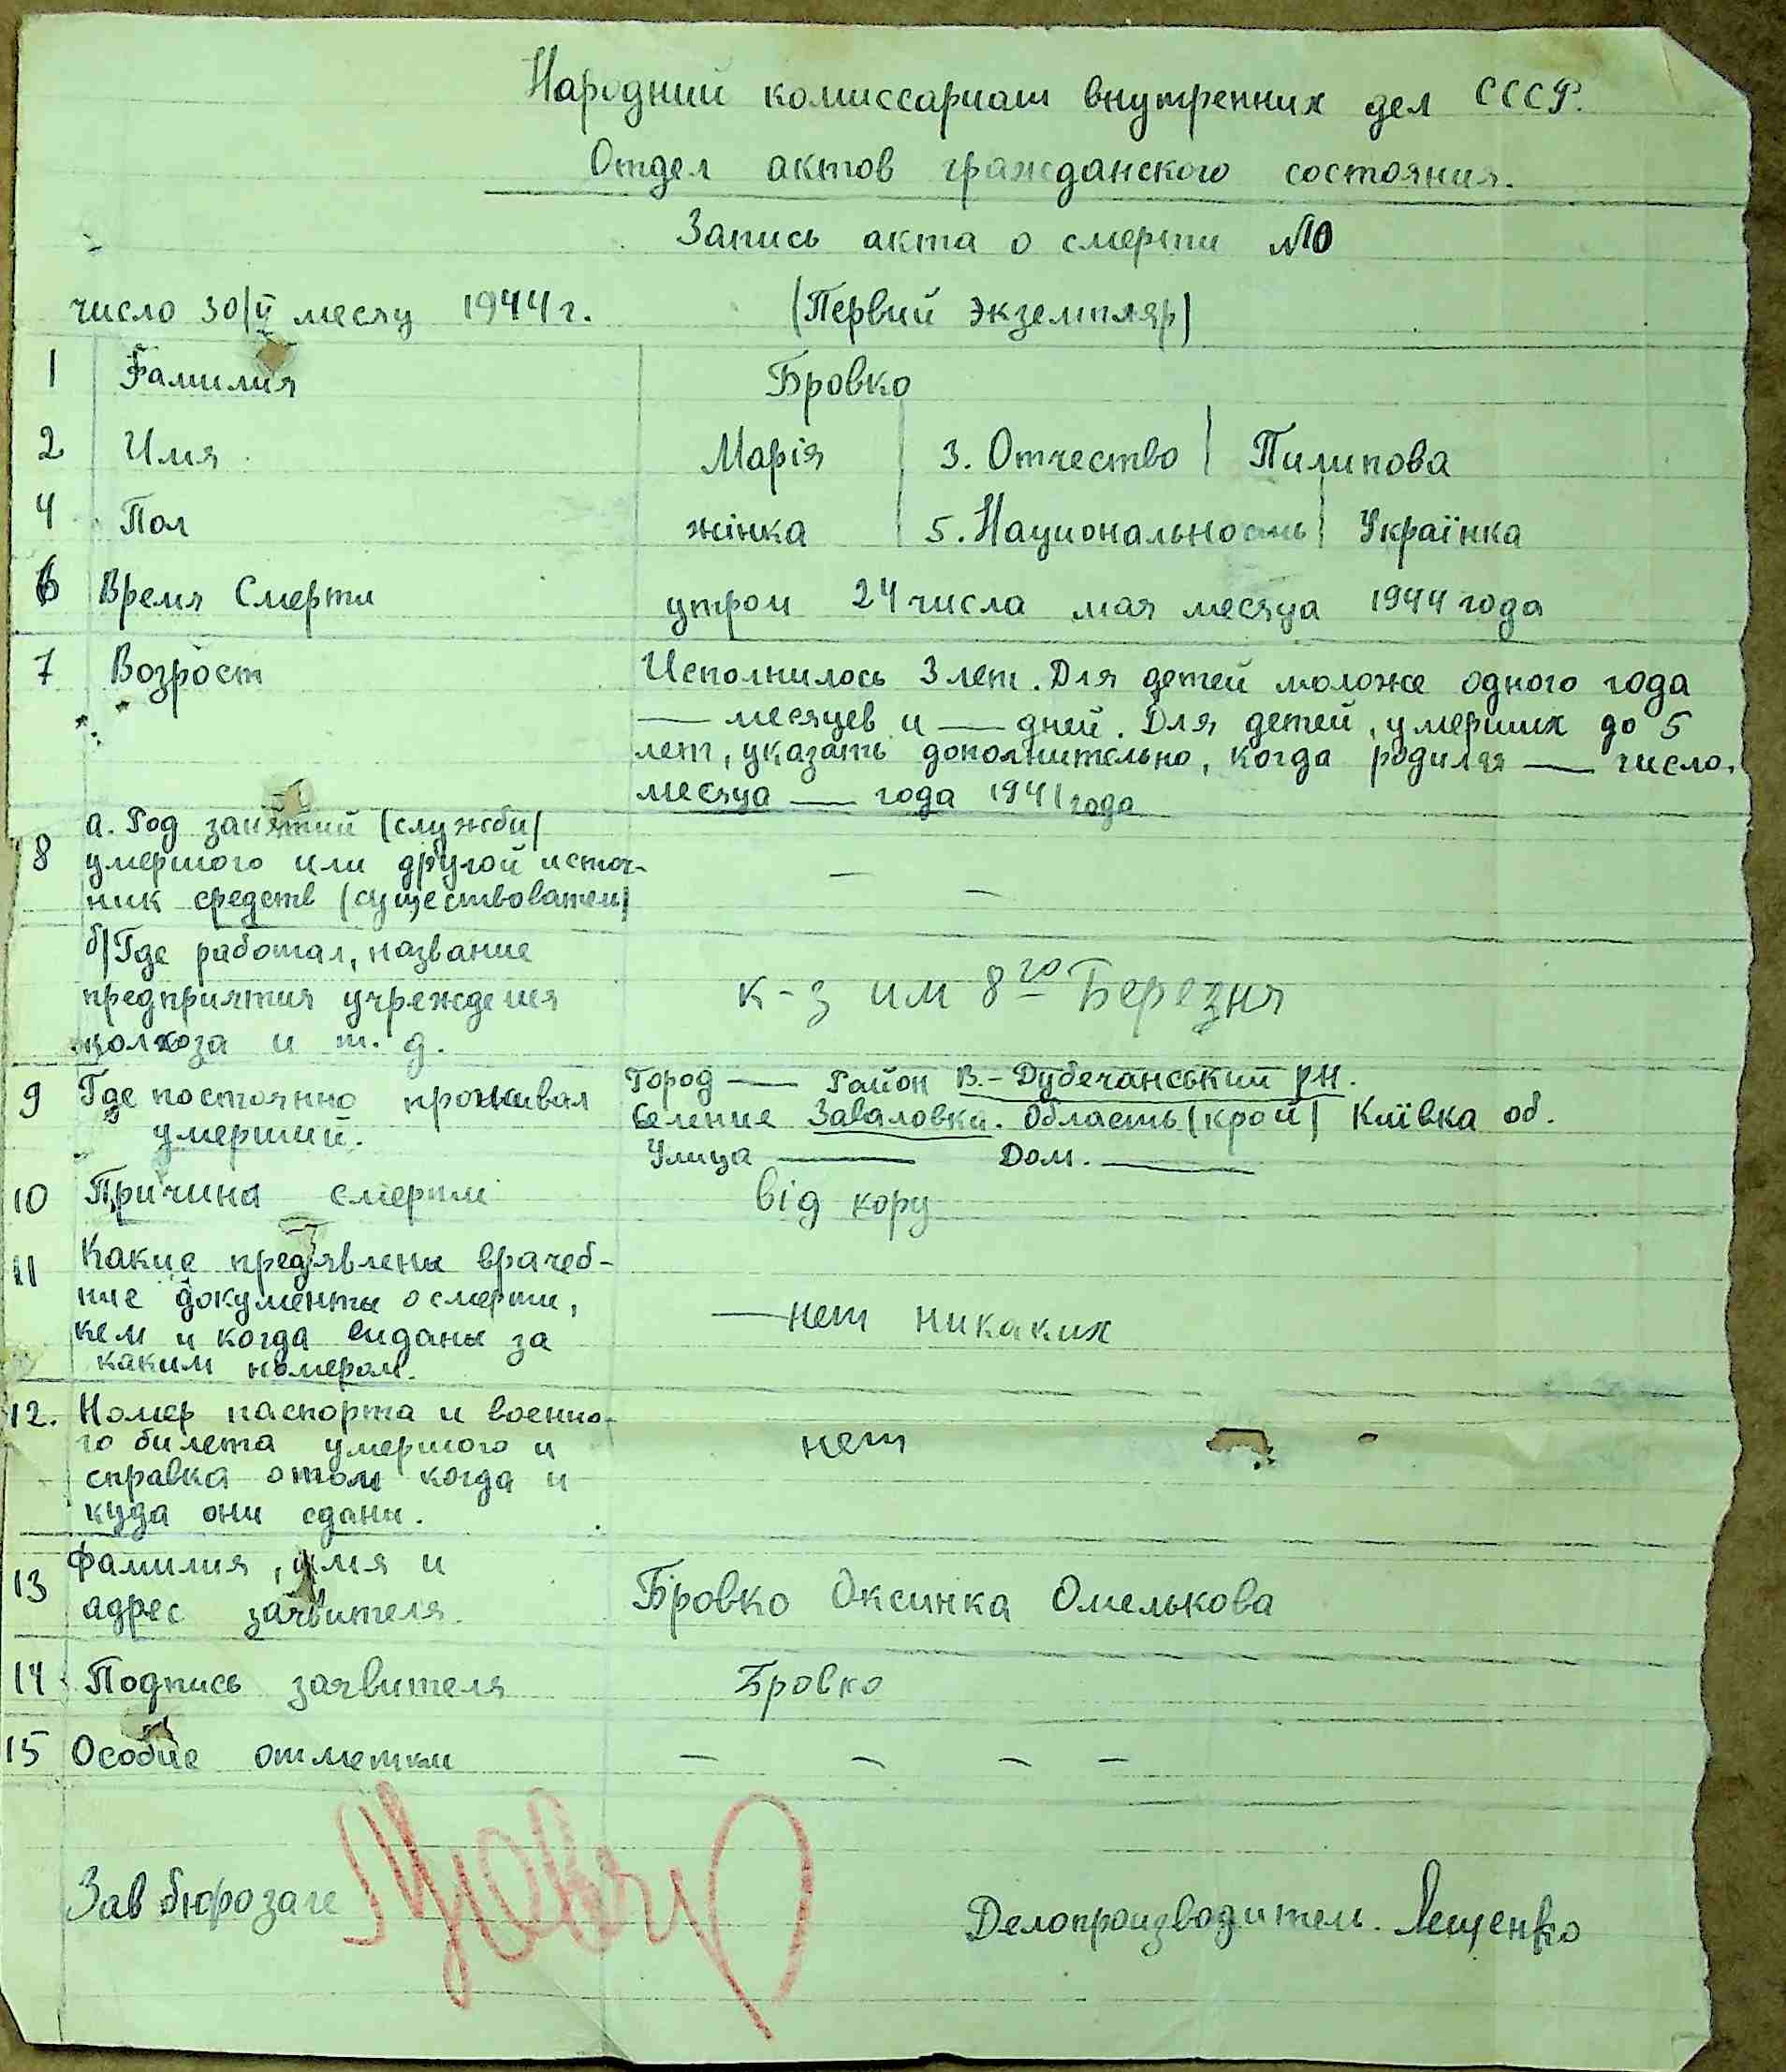 Народний комиссариат внутренних дел СССР.
Отдел актов гражданского состояния.
Запись акта о смерти №10
число 30/V месяц 1944 г. (Первий экземпляр)
1 Фамилия Бровко
2 Имя Марія 3. Отчество Пилипова
4 Пол жінка 5. Национальность Українка
6 Время Смерти утром 24 числа мая месяца 1944 года
7 Возрост Исполнилось 3 лет. Для детей моложе одного года
— месяцев и — дней. Для детей, умерших до 5
лет, указать дополнительно, когда родился — число.
месяца — года 1941 года
8 а. Род занятий (служби)
умершого или другой источ-
ник средств (существователи)
— —
б) Где работал, название
предприятия учреждения
колхоза и т. д.
к-з им 8го Березня
9 Где постоянно проживал
умерший.
Город — Район В.-Дубечанський рн.
Селение Заваловка. Область (край) Київка об.
Улица — Дом. —
10 Причина смерти від кору
11 Какие предявлены врачеб-
ние документы о смерти,
кем и когда виданы за
каким номером.
— нет никаких
12. Номер паспорта и военно-
го билета умершого и
справка о том когда и
куда они сдани.
нет
13 Фамилия, имя и
адрес заявителя.
Бровко Оксинка Омелькова
14 Подпись заявителя Бровко
15 Особие отметки — — — —
Зав бюро загс
Делопроизводитель. Лещенко